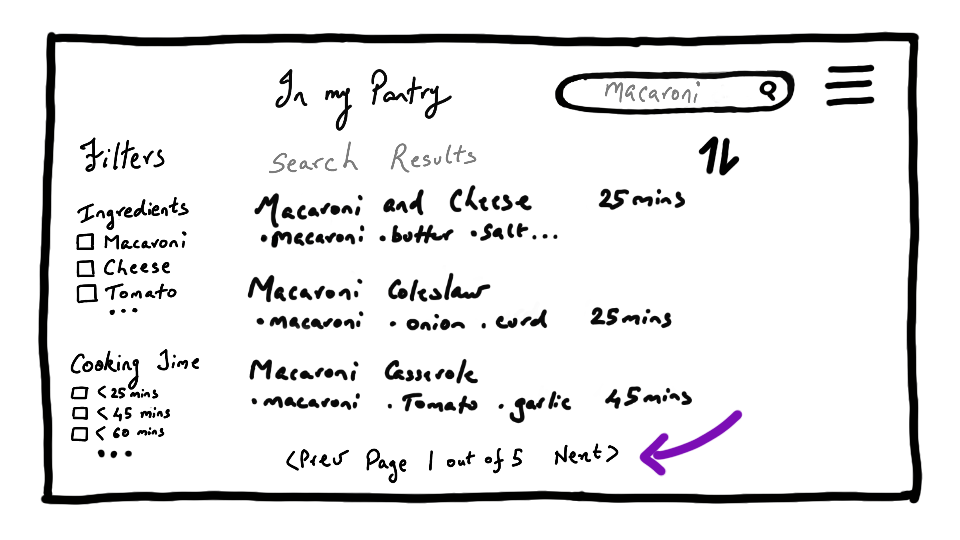 In my Pantry
Macaroni
Filters
Search Results
Ingredients
Macaroni
Cheese
Tomato
...
Cooking Time
< 25 mins
< 45 mins
< 60 mins
...
Macaroni and Cheese 25 mins
• macaroni • butter • salt...
Macaroni Coleslaw
• macaroni • onion • curd 25 mins
Macaroni Casserole
• macaroni • Tomato • garlic 45 mins
<Prev Page 1 out of 5 Next>